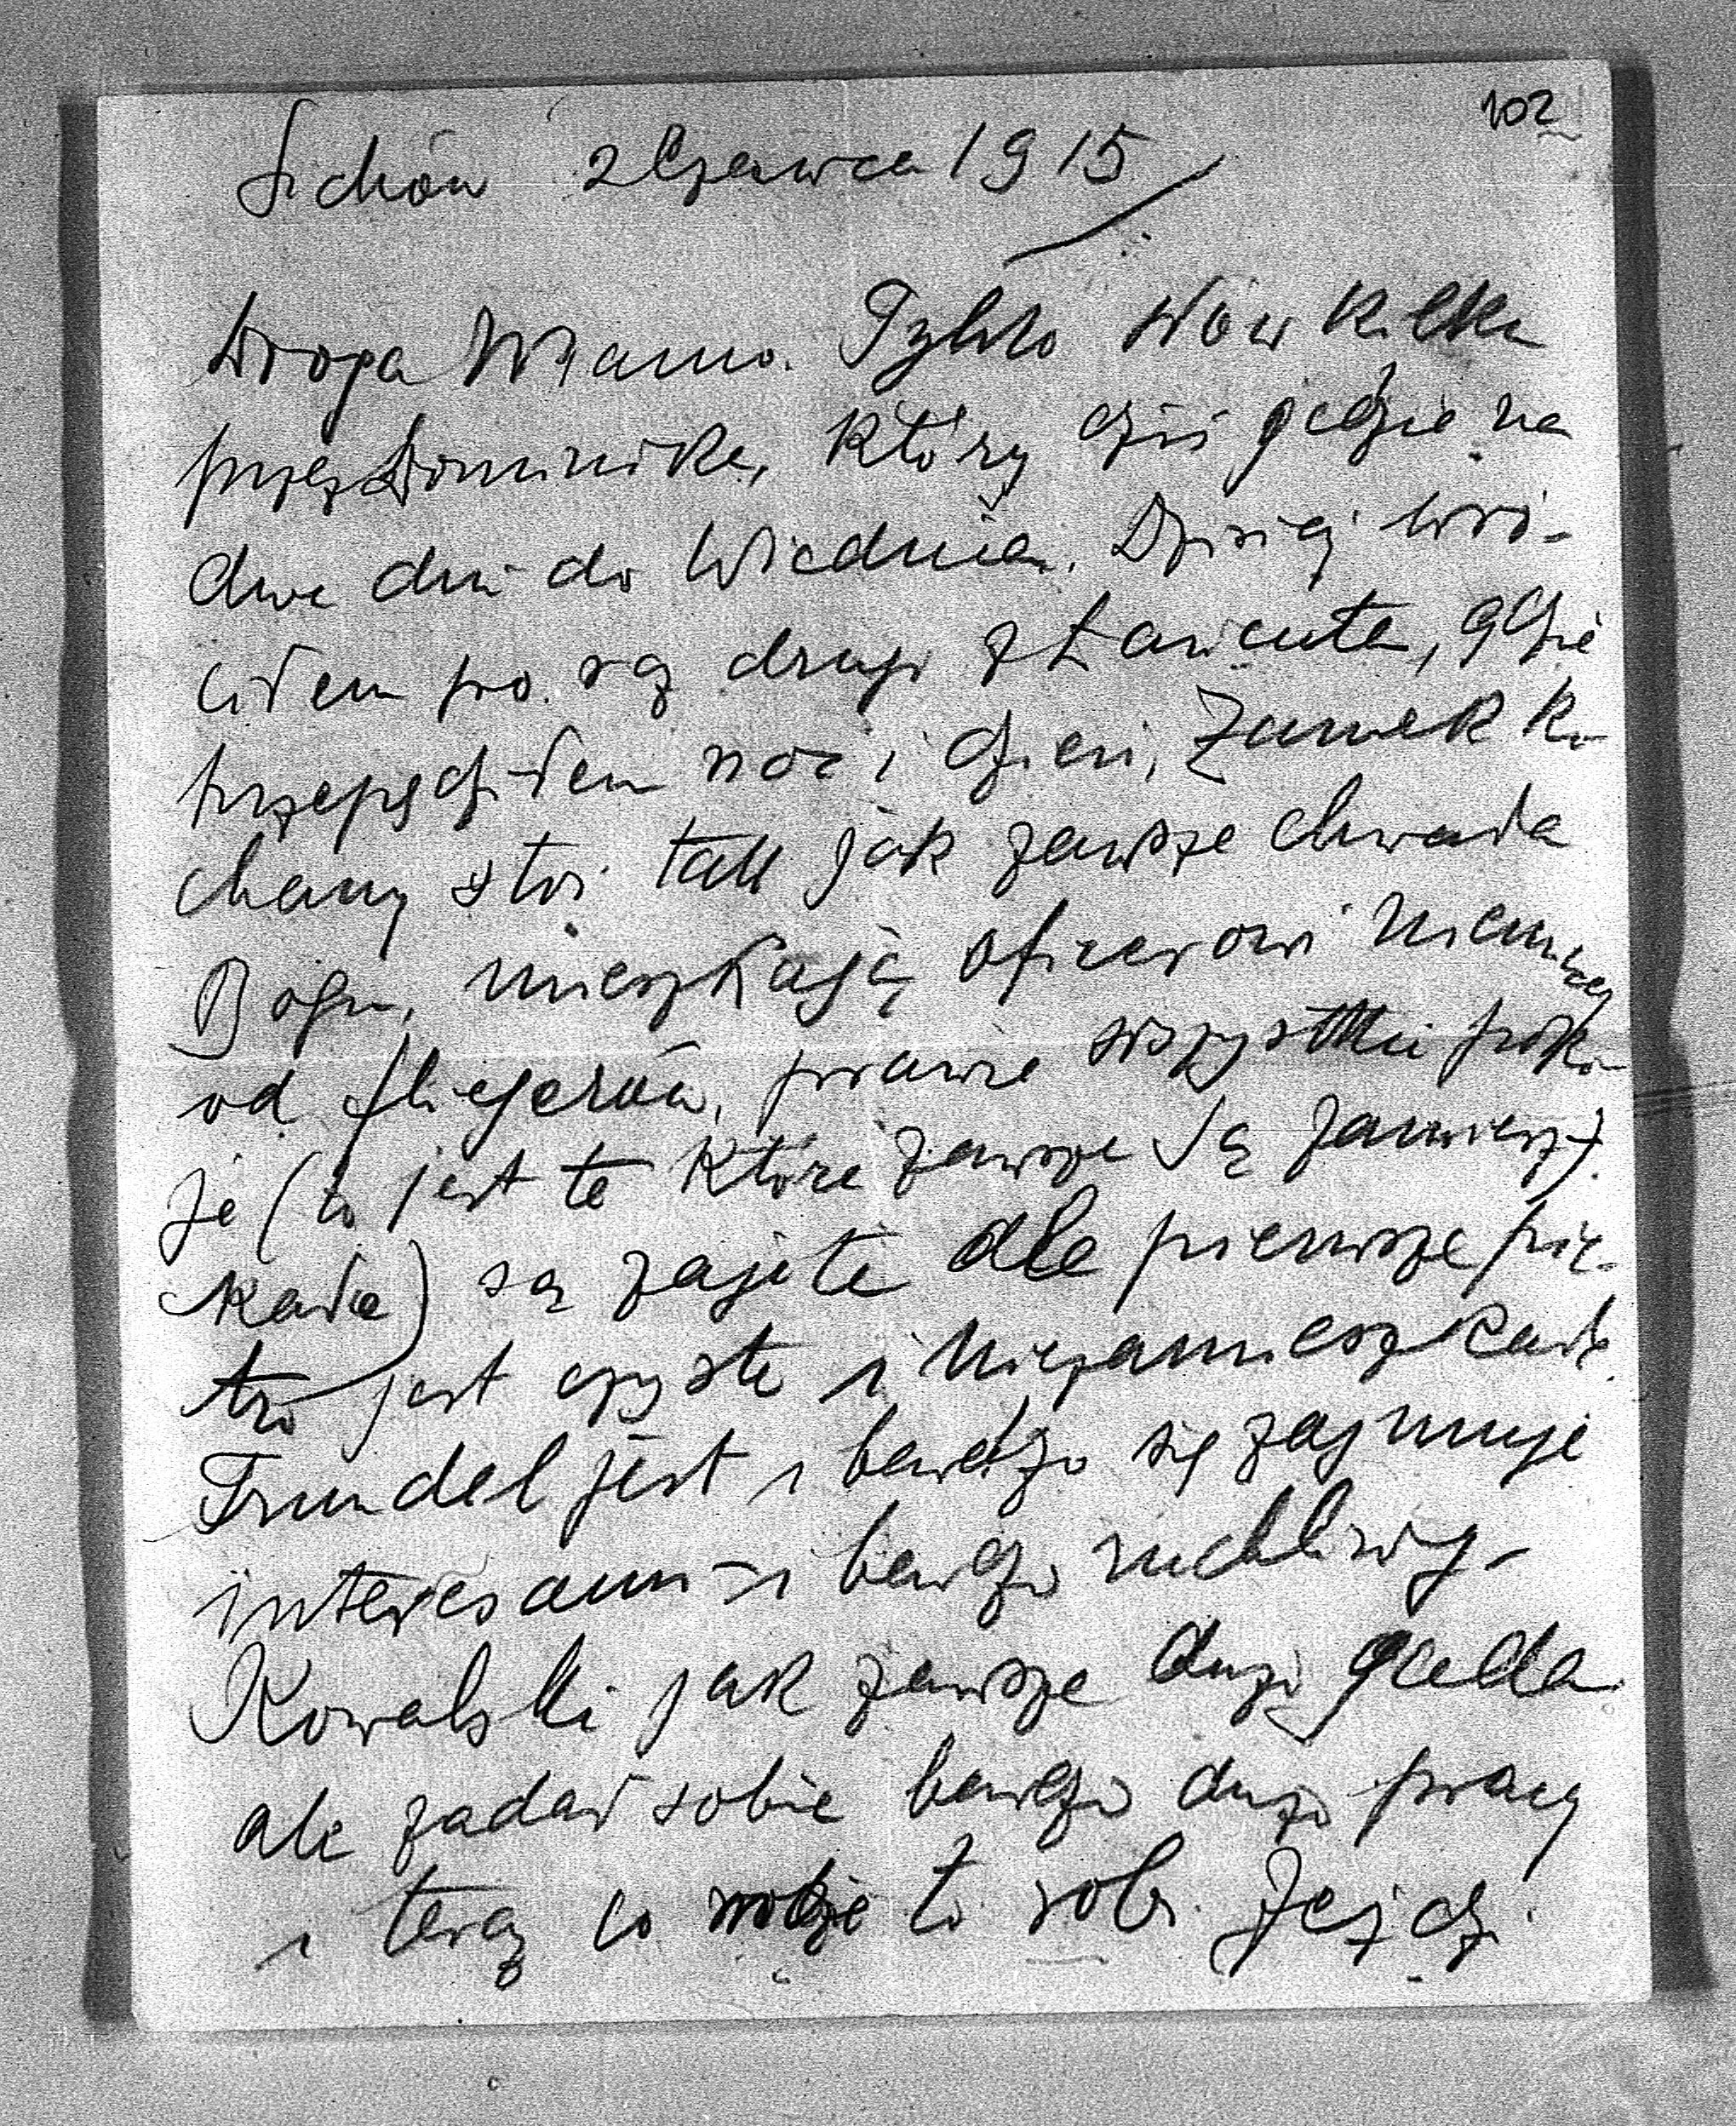 102
Sichów 2 Czerwca 1915
Droga Mamo. Tylko słów kilka
przez Dominika, który dziś jedzie na
dwa dni do Wiednia. Dzisiaj wró-
ciłem po raz drugi z Łańcuta, gdzie
przepędziłem noc i dzień, Zamek ko
chany stoi tak jak zawsze chwała
Bogu, mieszkają oficerowie niemieccy
od fliegerów, prawie wszystkie poko
je (to jest te które zawsze są zamiesz
kałe) są zajęte ale pierwsze pię-
tro jest czyste i niezamieszkałe.
Trundel jest i bardzo się zajmuje
interesami – i bardzo ruchliwy –
Kowalski jak zawsze dużo gada
ale zadał sobie bardzo dużo pracy
i teraz co może to robi. Jeździ